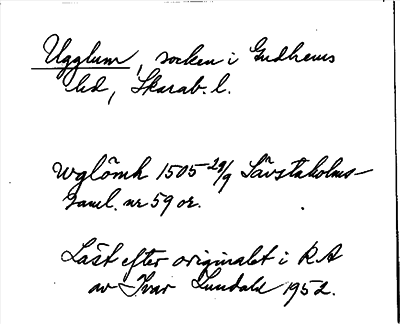 Ugglum, socken i Gudhems
hd, Skarab. l.
Wglömh 1505 29/9 Säfstaholms-
saml. nr 59 or.
Läst efter originalet i RA
av Ivar Lundahl 1952.